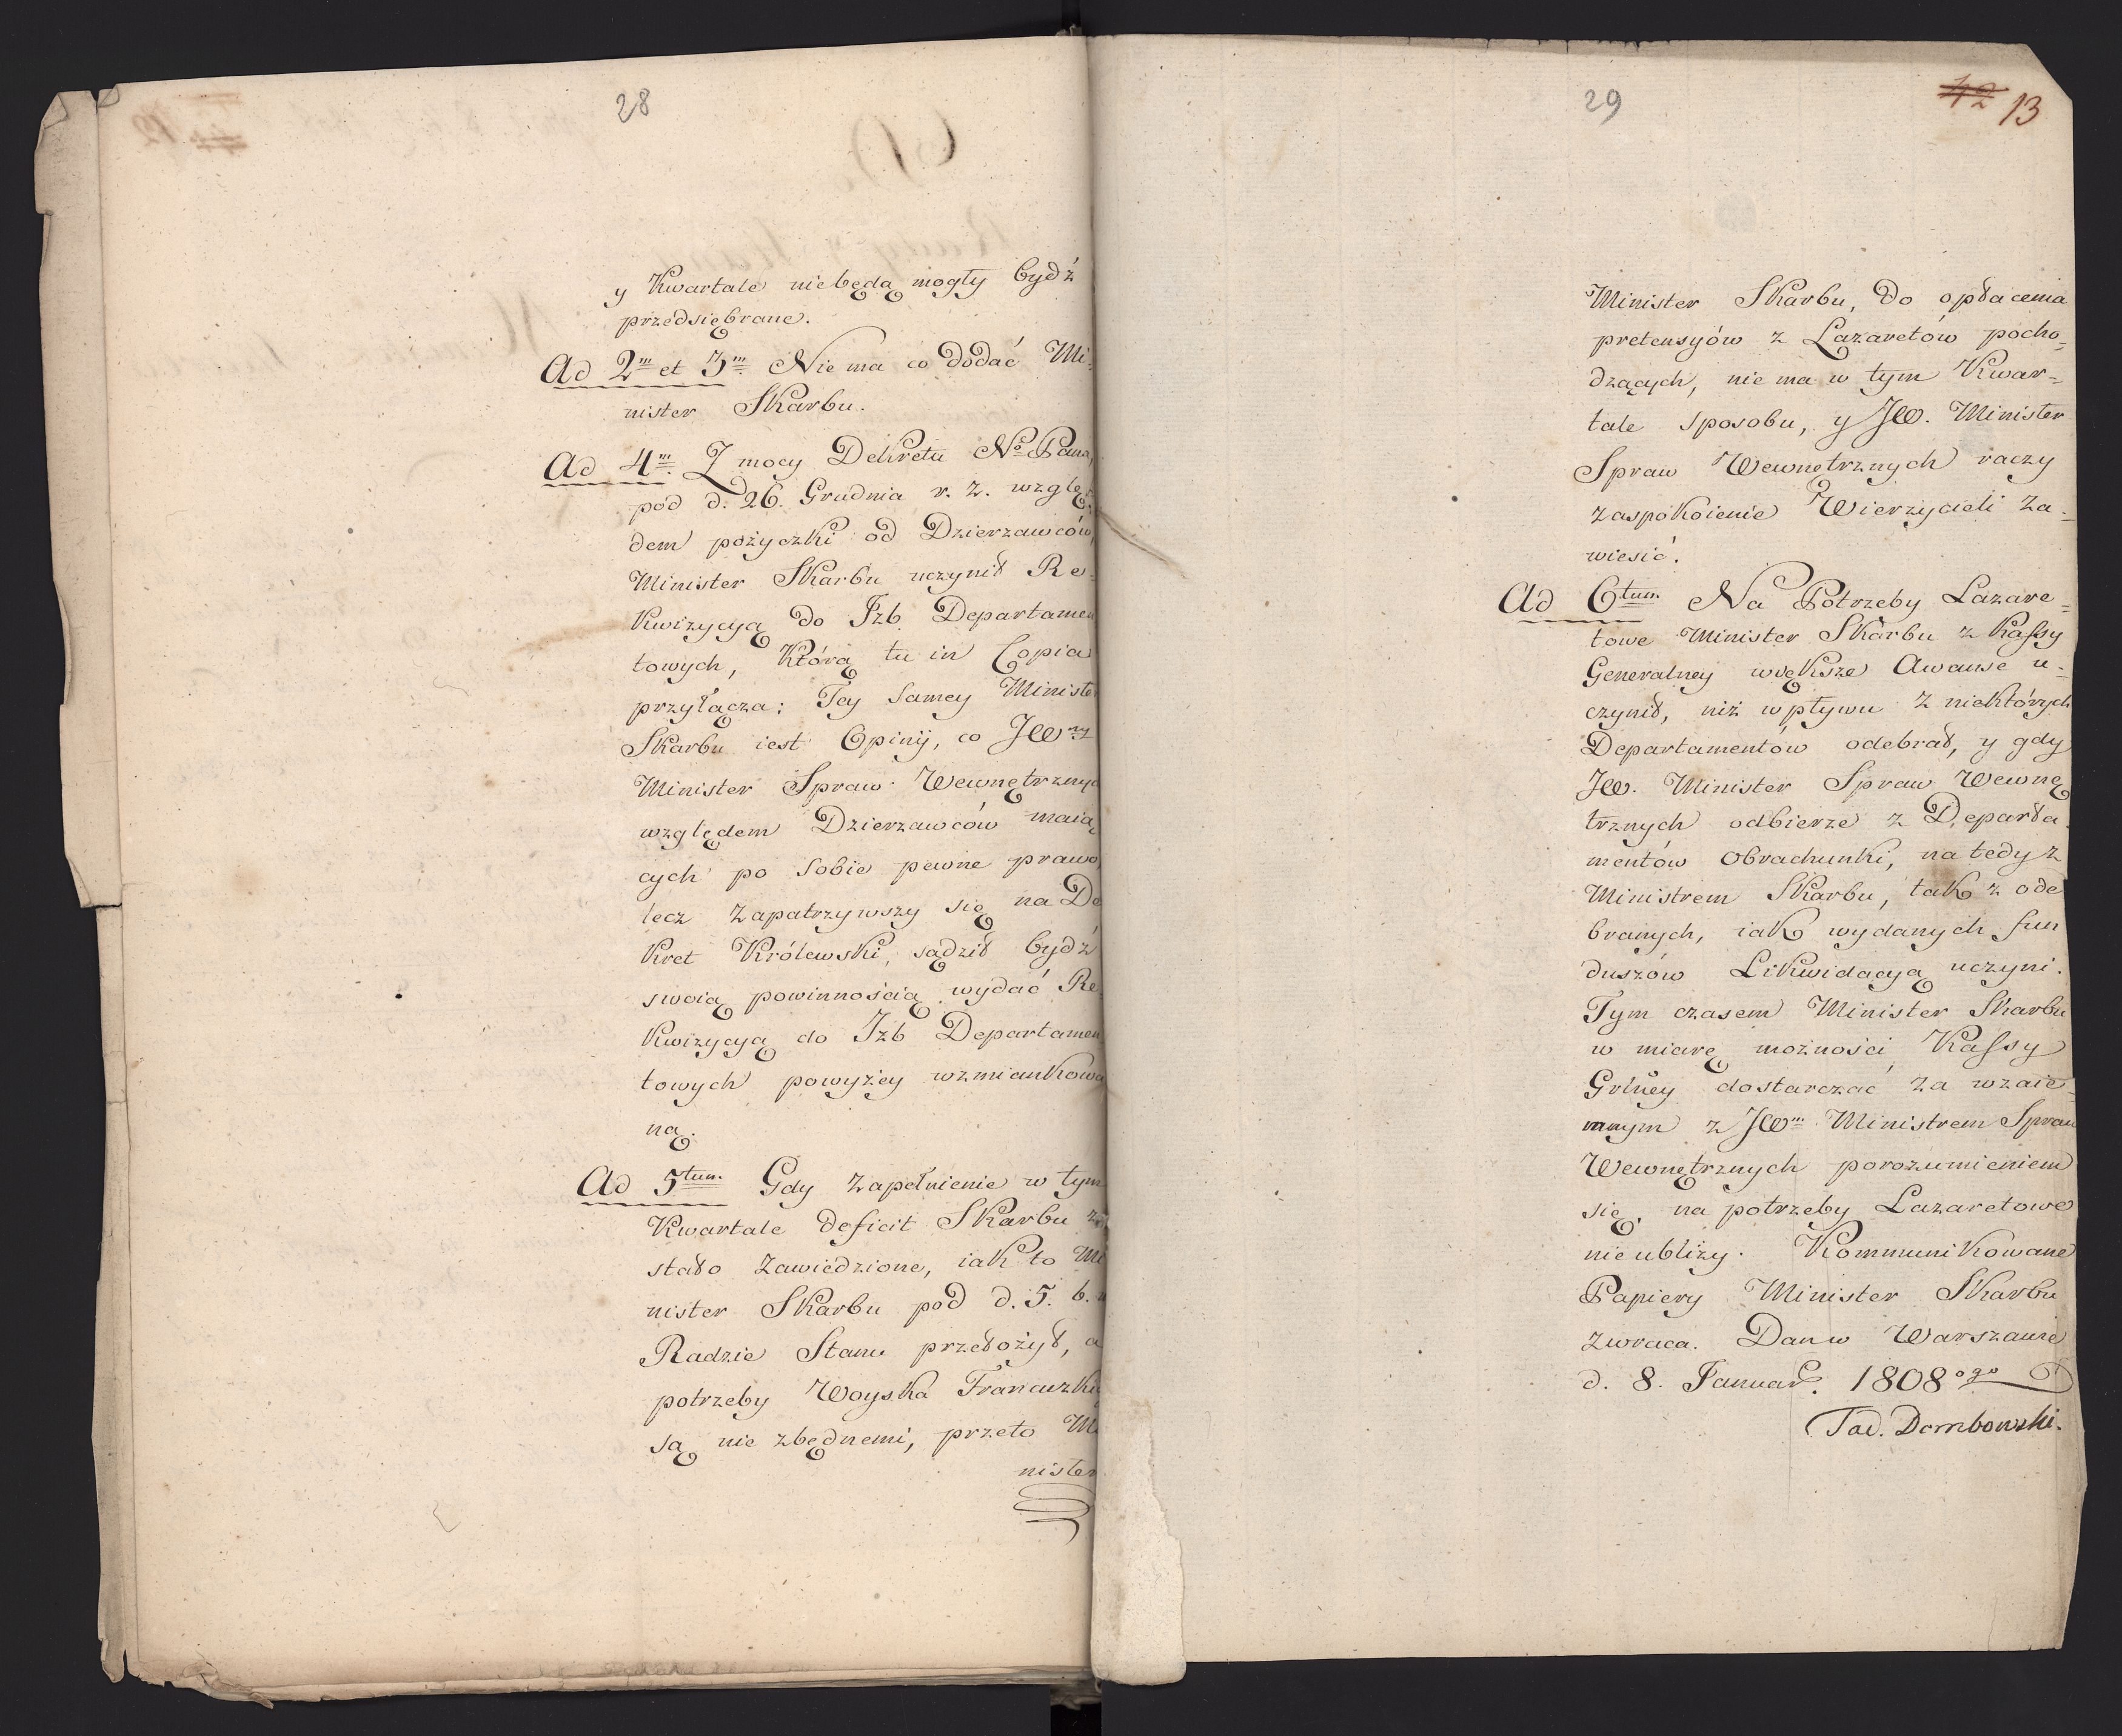 28
y Kwartale niebędą mogły bydź
przedsiębrane.
Ad 2m et 3m Nie ma co dodać Mi-
nister Skarbu.
Ad 4m Z mocy Dekretu No Pana,
pod d. 26. Grudnia r. z. wzglę-
dem pożyczki od Dzierzawców,
Minister Skarbu uczynił Re-
kwizycyą do Izb Departamen
towych, którą tu in Copia
przyłącza: Tey samey Minister
Skarbu iest Opinij, co JW
Minister Spraw Wewnętrznych
względem Dzierzawców maią
cych po sobie pewne prawo,
lecz zapatrzywszy się na De
kret Królewski, sądził bydź
swoią powinnością wydać Re-
kwizycyą do Izb Departamen
towych powyżey wzmiankowa
ną.
Ad 5tum Gdy zapełnienie w tym
Kwartale deficit Skarbu zo
stało zawiedzione, iak to Mi
nister Skarbu pod d. 5. b. m
Radzie Stanu przełożył, a
potrzeby Woyska Francuzki
są nie zbędnemi, przeto Mi
nister
29
42 13
Minister Skarbu, do opłacenia
pretensyów z Lazaretów pocho-
dzących, nie ma w tym Kwar-
tale sposobu, y JW. Minister
Spraw Wewnętrznych raczy
zaspokoienie Wierzycieli za-
wiesić.
Ad 6tum Na Potrzeby Lazare-
towe Minister Skarbu z Kassy
Generalney większe Awanse u-
czynił, niż wpływu z niektórych
Departamentów odebrał, y gdy
JW. Minister Spraw Wewnę
trznych odbierze z Departa
mentów Obrachunki, na tedy z
Ministrem Skarbu, tak z ode
branych, iak wydanych fun
duszów Likwidacyą uczyni.
Tym czasem Minister Skarbu
w miarę możności Kassy
Grlney dostarczać za wzaie-
mnym z JWm Ministrem Spraw
Wewnętrznych porozumieniem
się, na potrzeby Lazaretowe
nie ubliży. Kommunikowane
Papiery Minister Skarbu
zwraca. Dan w Warszawie
d. 8. Januar. 1808ogo
Tad. Dembowski.